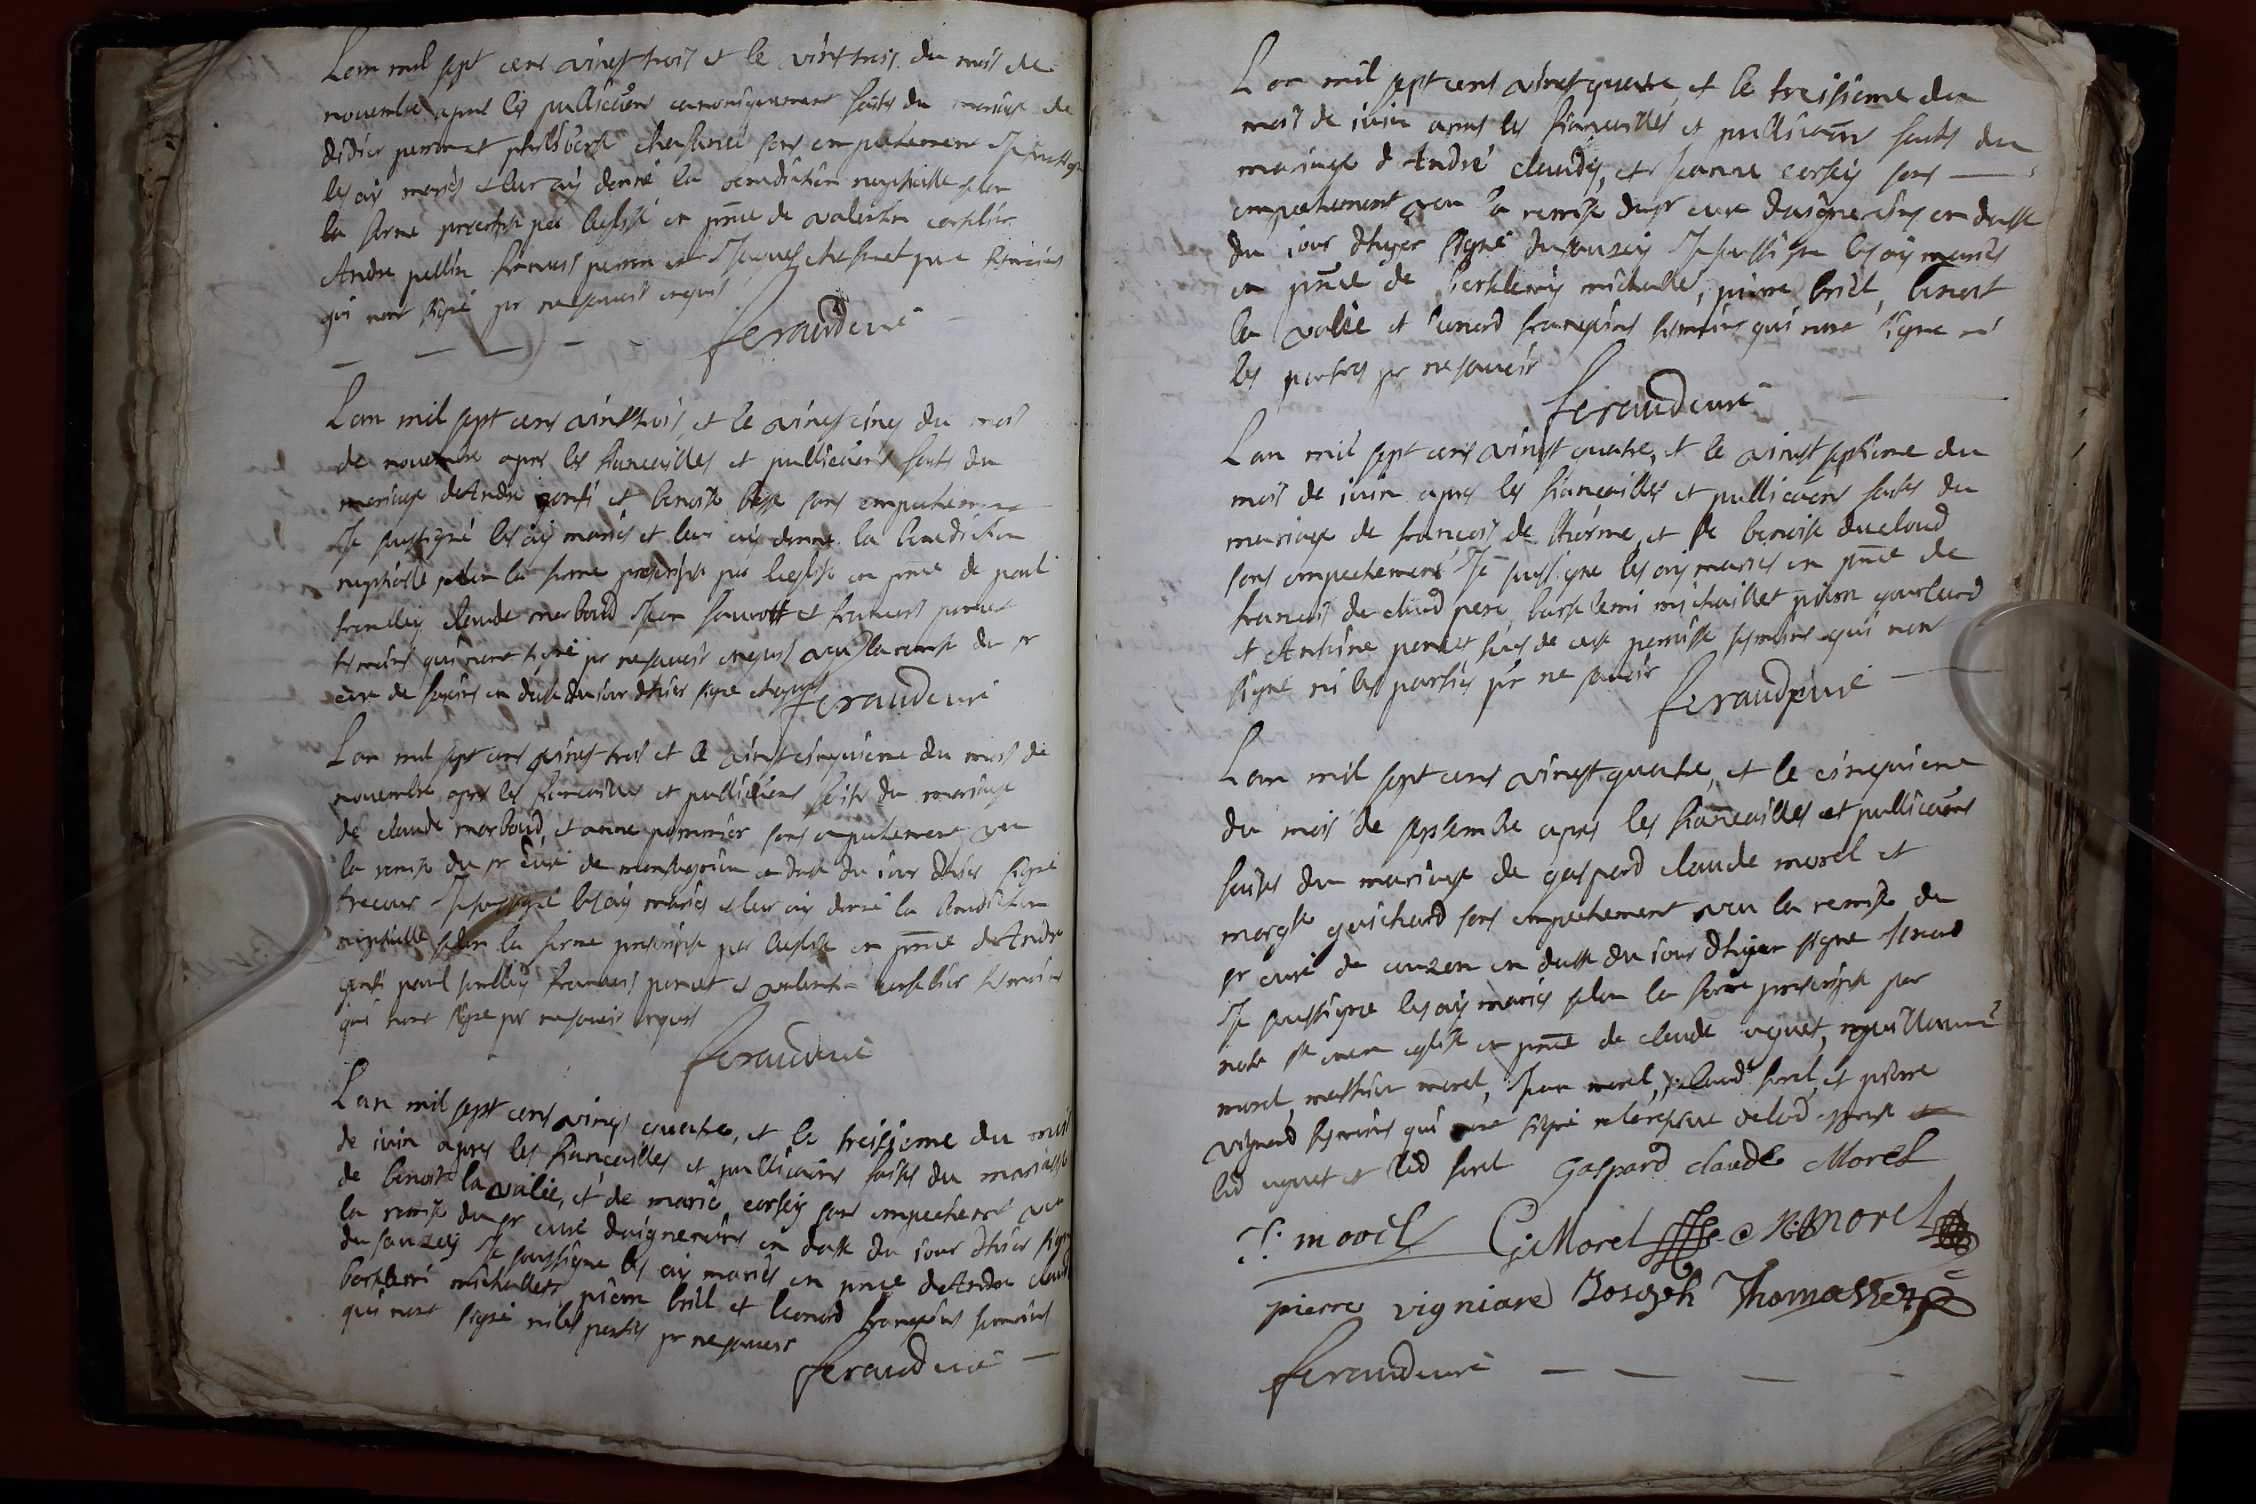 Lan mil sept cens vingt trois et le vint trois du mois de
novembre apres les pullicãons canoniquement faites du mariage de
didier perret et philiberte chasance sans empechement Je soussigne
les ay mariés et leur ay donné la benediction nuptialle selon
la forme prescritte par leglise en pnce de valentin
Andre pellin francois perret et Jacques chasanet
qui nont signé pr ne savoir enquis
feraud curé
Lan mil sept cens vint trois, et le vingt cinq du mois
de novembre apres les fiancailles et pullicãons faites du
mariage dAndre gonti et benoiste besse sans empechement
Je soussigné les ay mariés et leur ay donne la benediction
nuptialle selon la forme prescripte par leglise en pnce de paul
claude marboud Jean et francois perret
temoins qui nont signé pr ne savoir enquis veu la remise du sr
cure de en datte du jour dhier signe
feraud curé
Lan mil sept cens vingt trois et le vingt cinquieme du mois de
novembre apres les fiancailles et pullicãons faites du mariage
de claude marboud, et anne pommier sans empechement veu
la remise du sr curé de en datte du jour dhier signé
Je soussigné les ay mariés et leur ay donné la benediction
nuptialle selon la forme prescripte par leglise en pnce dAndre
gonti paul francois perret et valentin temoins
qui nont signe pr ne savoir enquis
feraud curé
Lan mil sept cens vingt quatre, et le treisieme du mois
de juin apres les fiancailles et pullicãons faites du mariage
de benoit la valie, et de marie corsey sans empechemt veu
la remise du sr curé en datte du jour dhier signe
du sauzey Je soussigne les ay mariés en pnce dAndre claude
bartelemi michallet, pierre briel et leonard françois temoins
qui nont signé ni les parties pr ne savoir
feraud curé
Lan mil sept cens vingt quatre, et le treisieme du
mois de juin apres les fiancailles et pullicãons faites du
mariage dAndré claude, et jeanne corsey sans
empechement veu la remise du sr cure en datte
du jour dhyer signé du sauzey Je soussigne les ay mariés
en pnce de bartelemy michallet, pierre briel, benoit
la valie et leonard françois temoins qui nont signe ni
les parties pr ne savoir
feraud curé
Lan mil sept cens vingt quatre, et le vingt septieme du
mois de juin apres les fiançailles et pullicãons faites du
mariage de françois de lhorme, et de benoiste ducloud
sans empechement Je soussigne les ay mariés en pnce de
francois du cloud pere, bartelemi michallet pierre
et Antoine perret tous de cette parroisse temoins qui nont
signé ni les parties pr ne savoir
feraud curé
Lan mil sept cens vingt quatre, et le cinquieme
du mois de septembre apres les fiançailles et pullicãons
faites du mariage de gaspard claude morel et
margte guichard sans empechement veu la remise du
sr curé de couzon en datte du jour dhyer signe
Je soussigne les ay mariés selon la forme prescripte par
notre ste mere eglise en pnce de claude uguet, guillaume
morel, mathieu morel, Jean morel, claude forel, et pierre
vignard temoins qui ont signé
led uguet et led forel Gaspard claude Morel
J: morel G: Morel Morel
pierre vigniard Joseph Thomasset
feraud curé